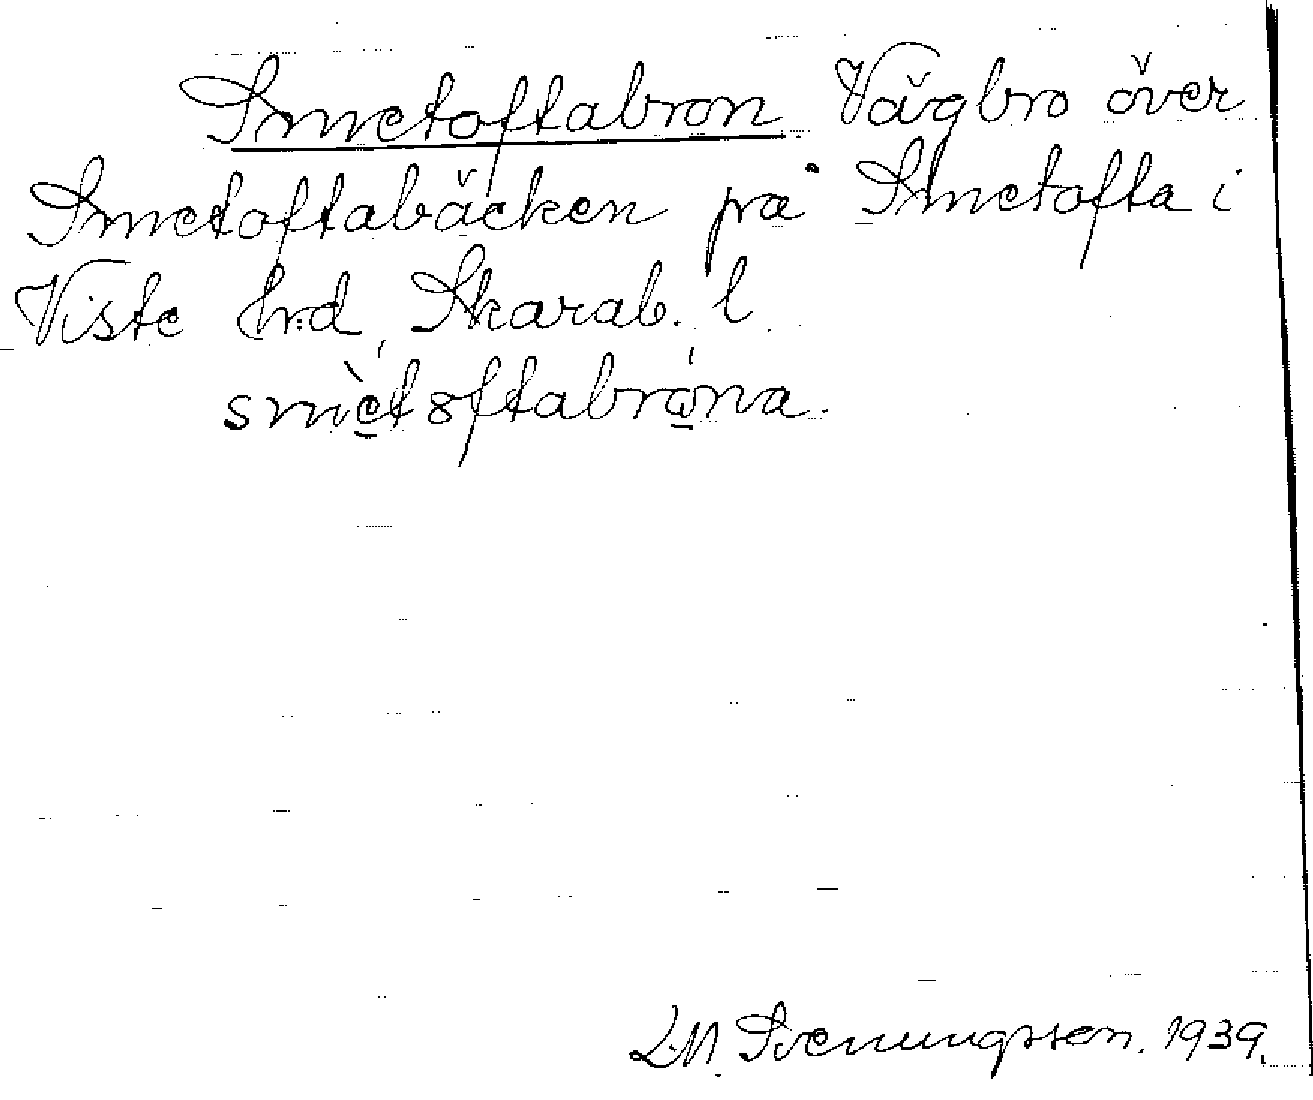 Smetoftabron. Vägbro över
Smetoftabäcken på Smetofta i
Viste hrd, Skarab. l.
smètoftabróna.
L.M. Svenungsson. 1939.